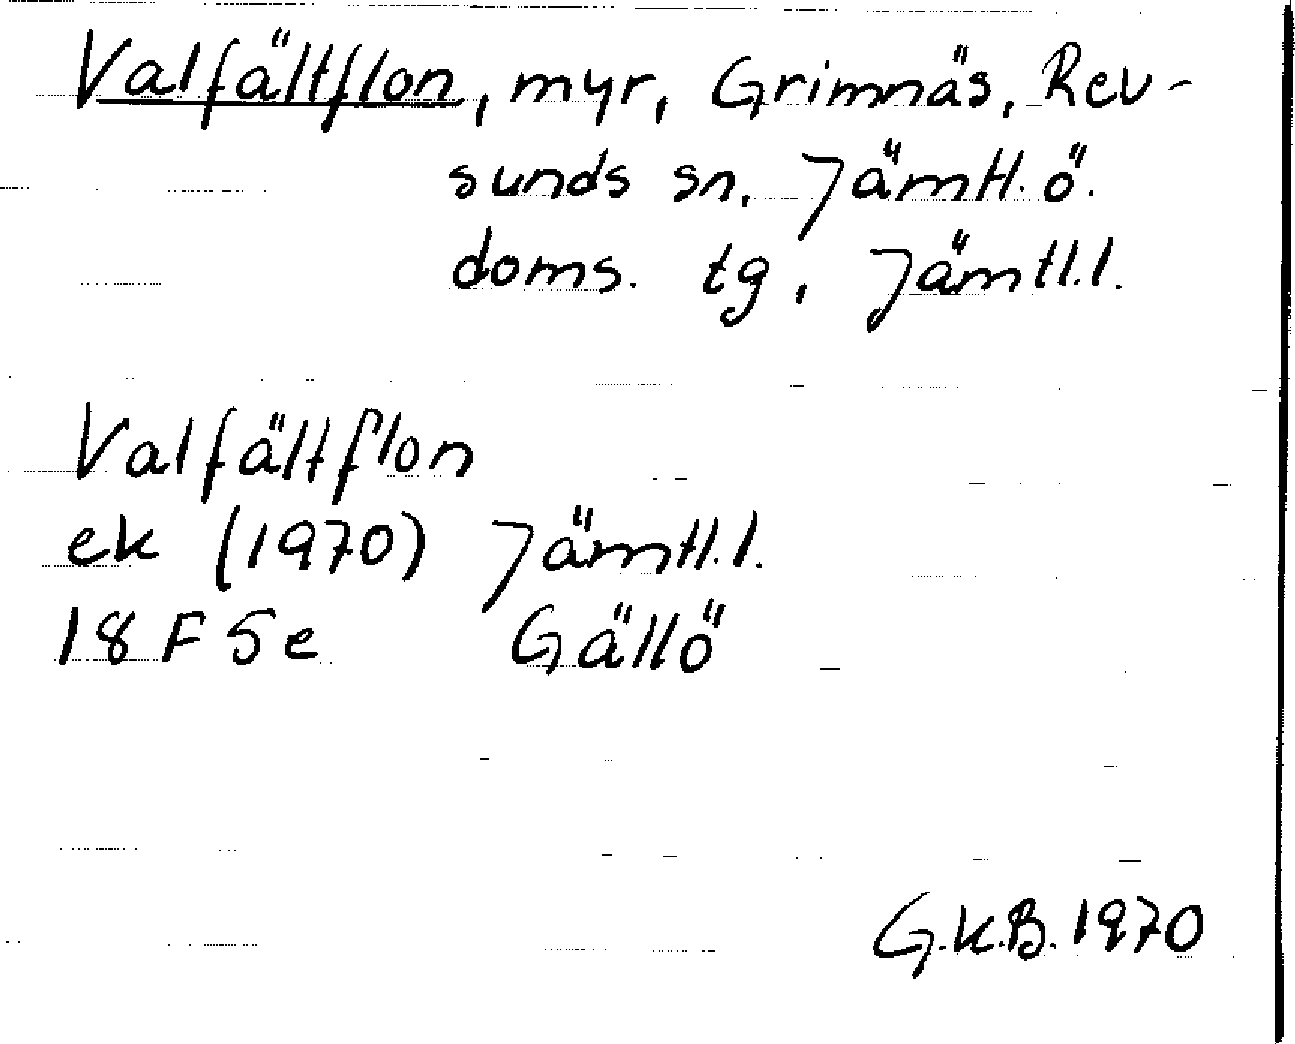 Valfältflon, myr, Grimnäs, Rev-
sunds sn, Jämtl. ö.
doms. tg, Jämtl.l.
Valfältflon
ek (1970) Jämtl.l.
18 F 5e Gällö
G.K.B. 1970